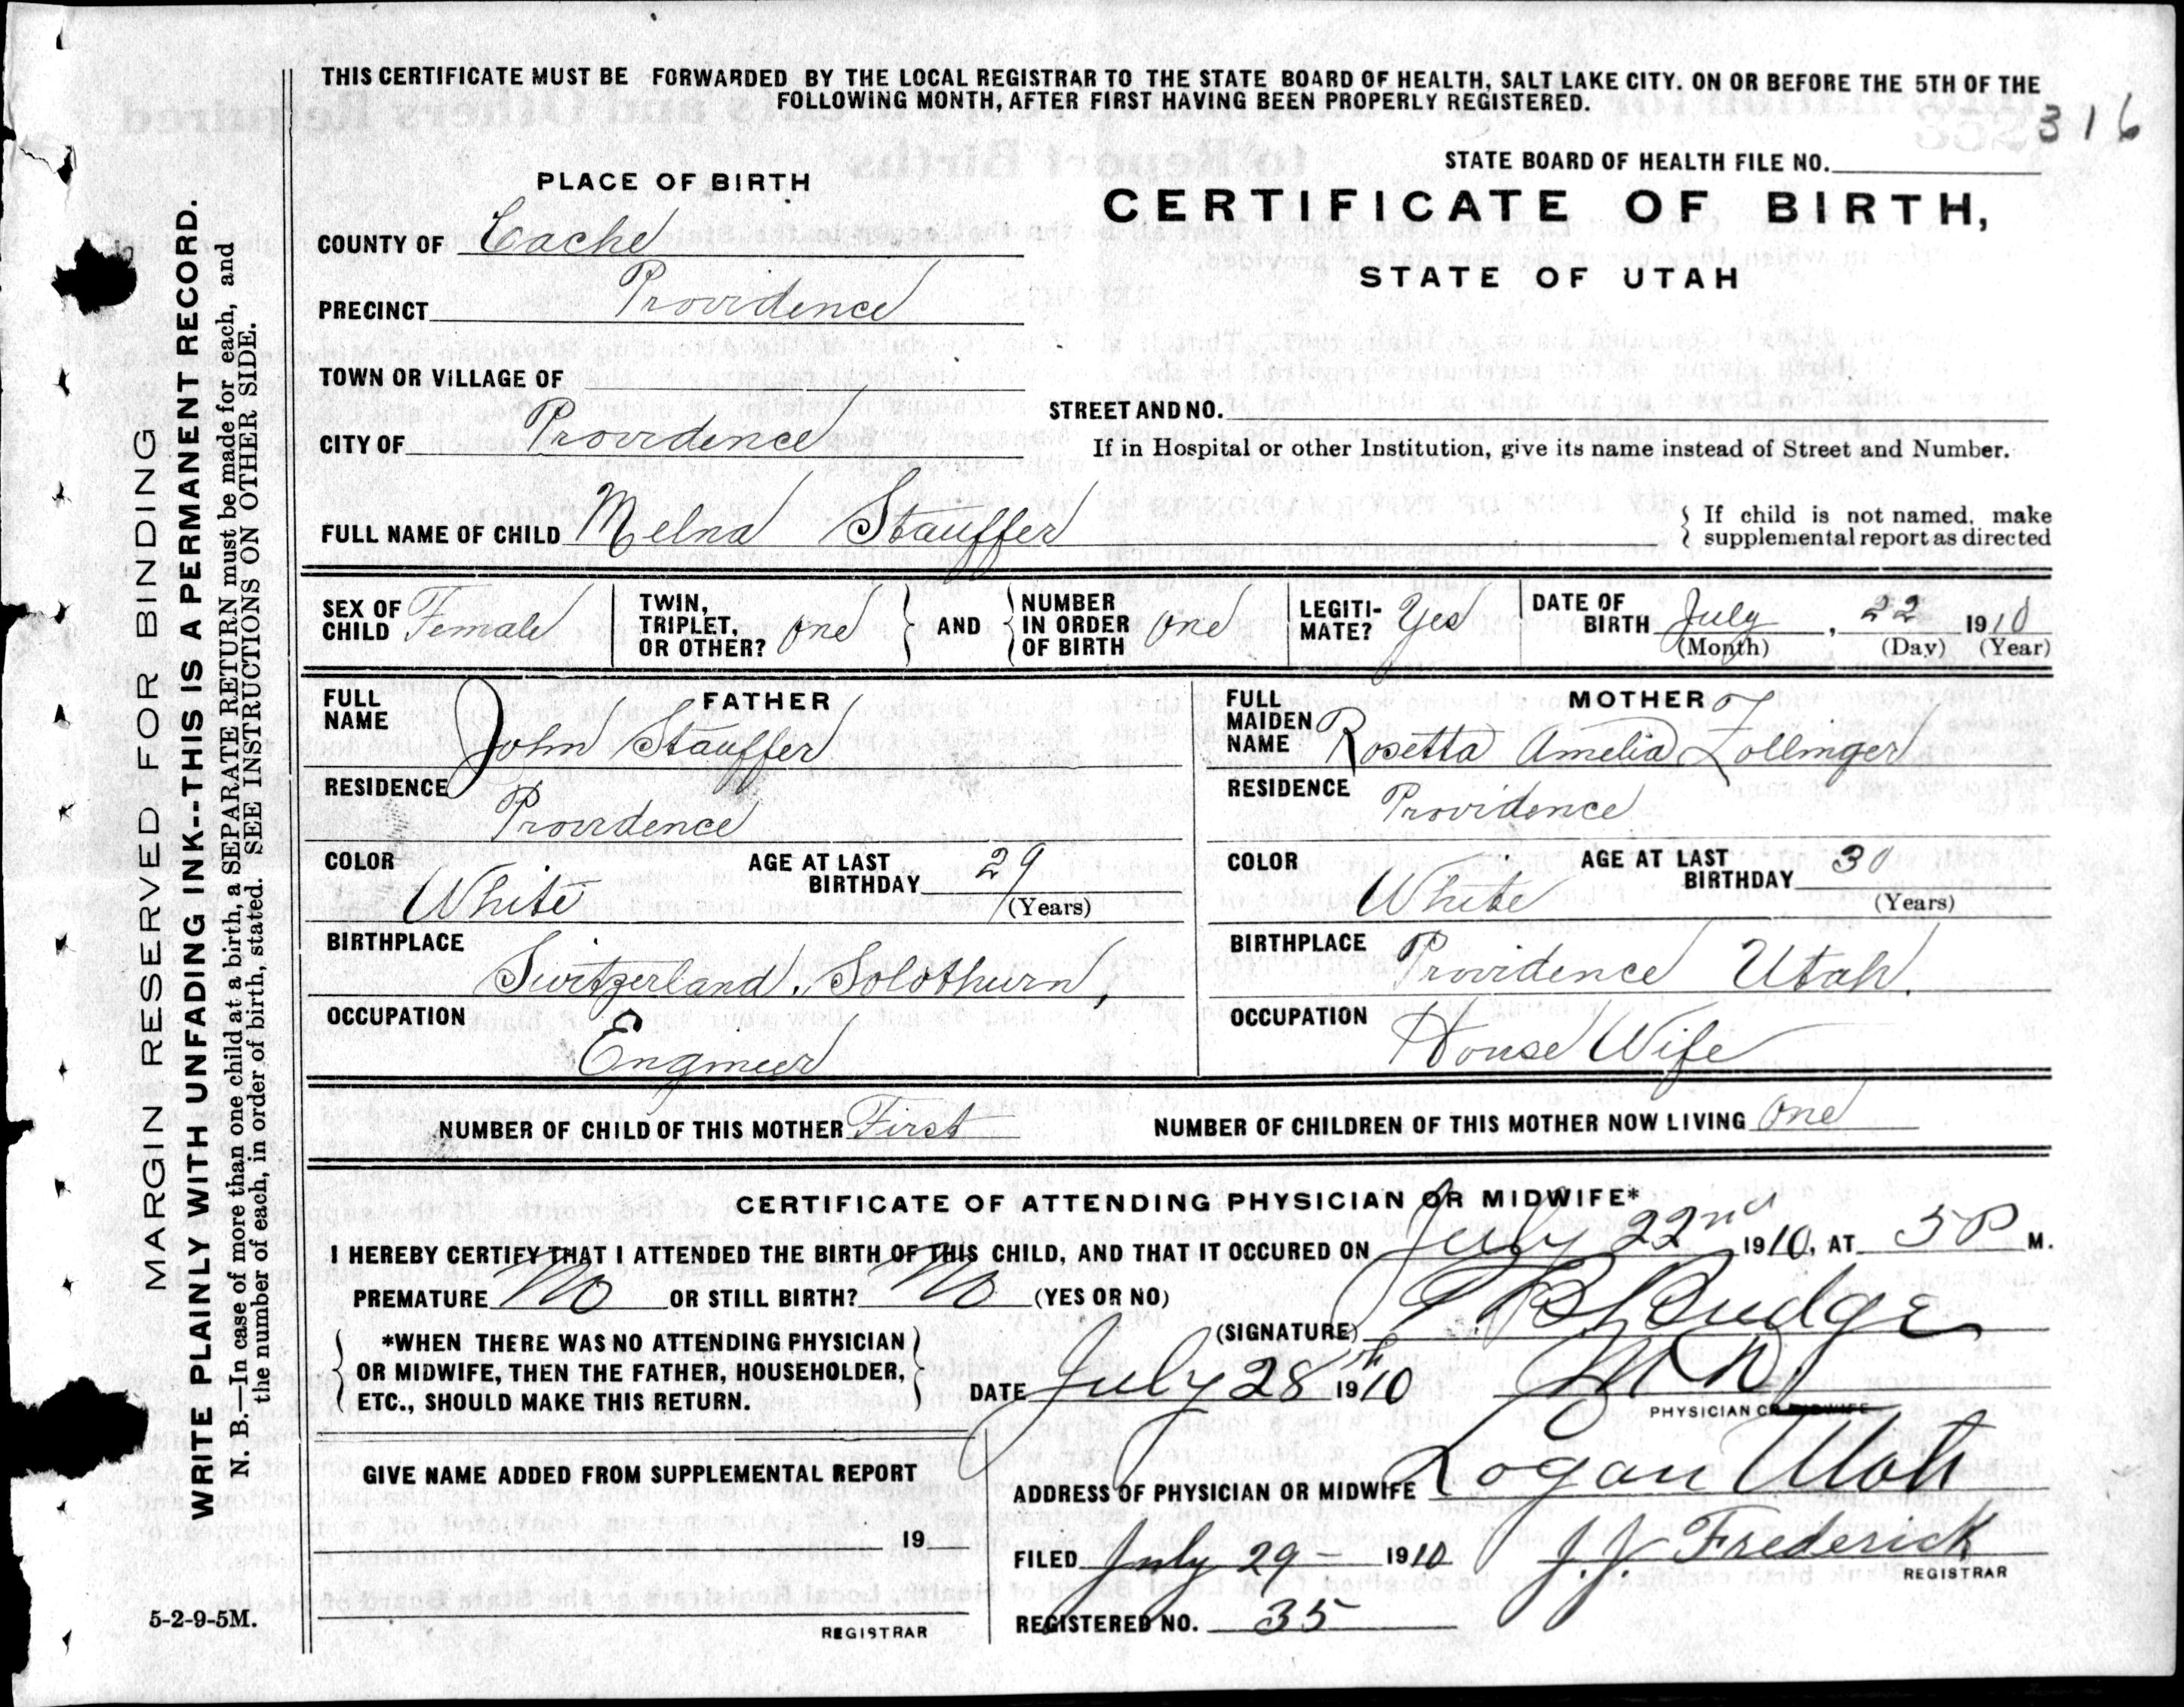 THIS CERTIFICATE MUST BE FORWARDED BY THE LOCAL REGISTRAR TO THE STATE BOARD OF HEALTH, SALT LAKE CITY. ON OR BEFORE THE 5TH OF THE
FOLLOWING MONTH, AFTER FIRST HAVING BEEN PROPERLY REGISTERED.
316
STATE BOARD OF HEALTH FILE NO.
PLACE OF BIRTH
CERTIFICATE OF BIRTH,
STATE OF UTAH
COUNTY OF Cache
PRECINCT Providence
TOWN OR VILLAGE OF
CITY OF Providence
STREET AND NO.
If in Hospital or other Institution, give its name instead of Street and Number.
FULL NAME OF CHILD Melna Stauffer
{ If child is not named, make
supplemental report as directed
SEX OF CHILD Female
TWIN, TRIPLET, OR OTHER? one } AND { NUMBER IN ORDER OF BIRTH one
LEGITI-MATE? Yes
DATE OF BIRTH July, 22 1910
(Month) (Day) (Year)
FATHER
FULL NAME John Stauffer
RESIDENCE Providence
COLOR White
AGE AT LAST BIRTHDAY 29
(Years)
BIRTHPLACE Switzerland. Solothurn,
OCCUPATION Engineer
MOTHER
FULL MAIDEN NAME Rosetta Amelia Zollinger
RESIDENCE Providence
COLOR White
AGE AT LAST BIRTHDAY 30
(Years)
BIRTHPLACE Providence Utah.
OCCUPATION House Wife
NUMBER OF CHILD OF THIS MOTHER First
NUMBER OF CHILDREN OF THIS MOTHER NOW LIVING One
CERTIFICATE OF ATTENDING PHYSICIAN OR MIDWIFE*
I HEREBY CERTIFY THAT I ATTENDED THE BIRTH OF THIS CHILD, AND THAT IT OCCURED ON July 22nd 1910, AT 5 P M.
PREMATURE No OR STILL BIRTH? No (YES OR NO)
{ *WHEN THERE WAS NO ATTENDING PHYSICIAN
OR MIDWIFE, THEN THE FATHER, HOUSEHOLDER,
ETC., SHOULD MAKE THIS RETURN. }
(SIGNATURE) Budge
DATE July 28th 1910 M D,
PHYSICIAN OR MIDWIFE
GIVE NAME ADDED FROM SUPPLEMENTAL REPORT
19
REGISTRAR
ADDRESS OF PHYSICIAN OR MIDWIFE Logan Utah
FILED July 29- 1910 J. J. Frederick
REGISTRAR
REGISTERED NO. 35
5-2-9-5M.
MARGIN RESERVED FOR BINDING
WRITE PLAINLY WITH UNFADING INK--THIS IS A PERMANENT RECORD.
N. B.—In case of more than one child at a birth, a SEPARATE RETURN must be made for each, and
the number of each, in order of birth, stated. SEE INSTRUCTIONS ON OTHER SIDE.